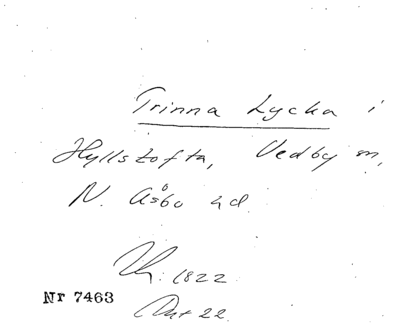 Trinna Lycka i
Hyllstofta, Vedby sn,
N. Åsbo hd.
1822
Nr 7463
22.